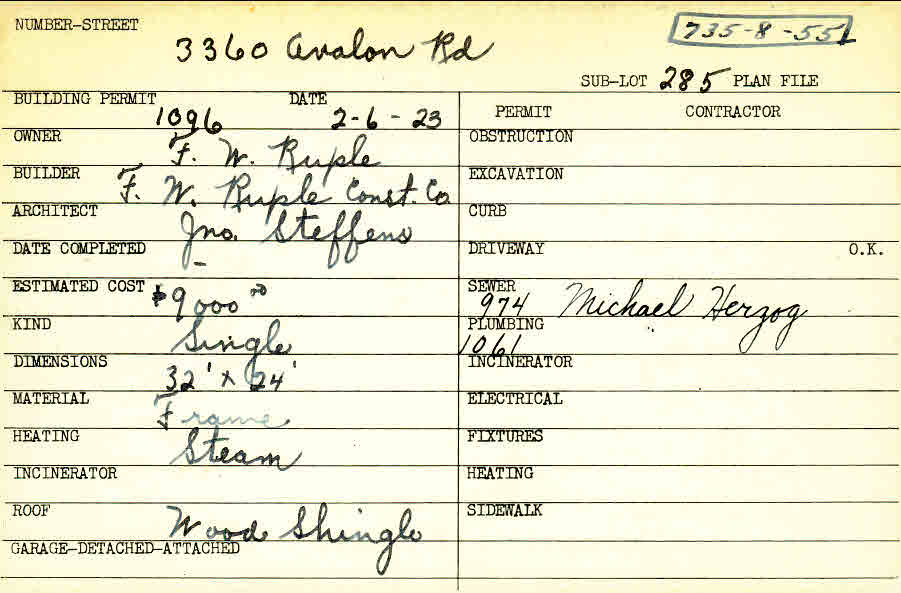 NUMBER-STREET
3360 Avalon Rd
735-8-551
SUB-LOT 285 PLAN FILE
BUILDING PERMIT DATE
1096 2-6-23
OWNER
F. W. Ruple
BUILDER
F. W. Ruple Const. Co
ARCHITECT
Jno. Steffens
DATE COMPLETED
-
ESTIMATED COST
$9000 00
KIND
Single
DIMENSIONS
32' x 24'
MATERIAL
Frame
HEATING
Steam
INCINERATOR
ROOF
Wood Shingle
GARAGE-DETACHED-ATTACHED
PERMIT CONTRACTOR
OBSTRUCTION
EXCAVATION
CURB
DRIVEWAY O.K.
SEWER
974 Michael Herzog
PLUMBING
1061
INCINERATOR
ELECTRICAL
FIXTURES
HEATING
SIDEWALK